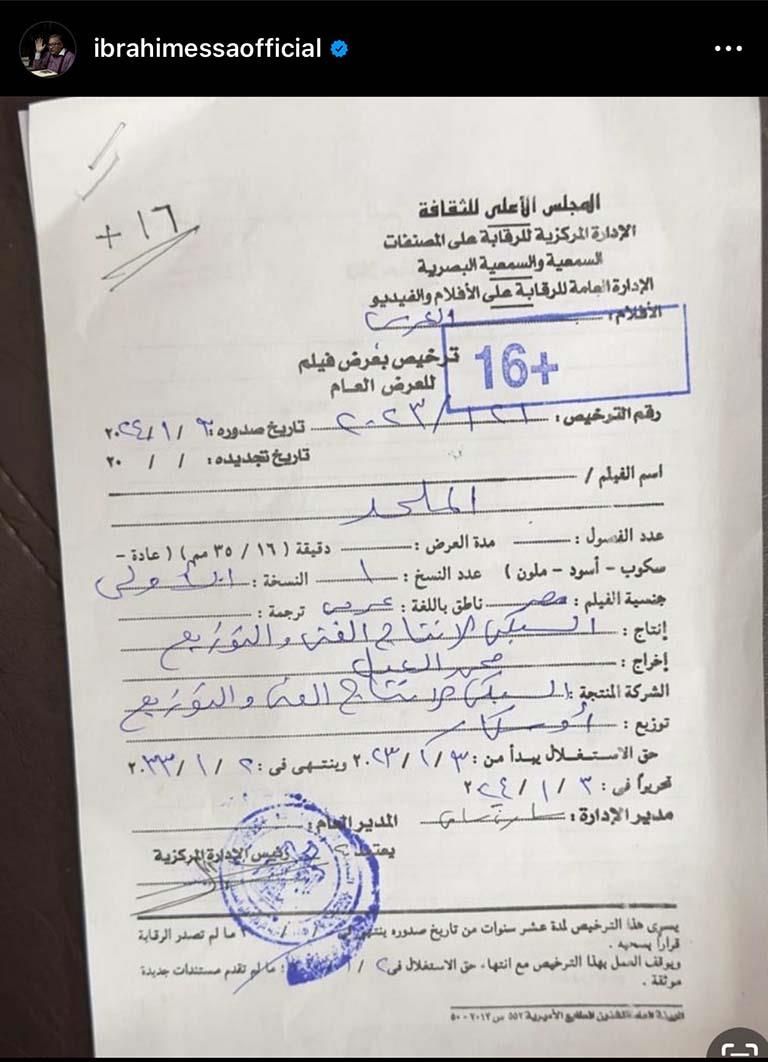 ibrahimessaofficial
+ ١٦
المجلس الأعلى للثقافة
الإدارة المركزية للرقابة على المصنفات
السمعية والسمعية البصرية
الإدارة العامة للرقابة على الأفلام والفيديو
الأفلام: العربية
16+
ترخيص بعرض فيلم
للعرض العام
رقم الترخيص: ١٢١ / ٢٠٢٣ تاريخ صدوره: ٣ / ١ / ٢٠٢٤
تاريخ تجديده: / / ٢٠
اسم الفيلم /
الملحد
عدد الفصول: مدة العرض: دقيقة ( ١٦ / ٣٥ مم ) ( عادة -
سكوب - أسود - ملون ) عدد النسخ: ١ النسخة: الأولى
جنسية الفيلم: مصر ناطق باللغة: عربى ترجمة:
إنتاج: السبكى للانتاج الفنى والتوزيع
إخراج: محمد العدل
الشركة المنتجة: السبكى للانتاج الفنى والتوزيع
توزيع: أوسكار
حق الاستغلال يبدأ من: ٣ / ١ / ٢٠٢٣ وينتهى فى: ٢ / ١ / ٢٠٣٣
تحريراً فى: ٣ / ١ / ٢٠٢٤
مدير الإدارة: المدير العام:
يعتمد
رئيس الإدارة المركزية
يسرى هذا الترخيص لمدة عشر سنوات من تاريخ صدوره ينتهى فى / / ٢٠ ما لم تصدر الرقابة
قراراً بسحبه .
ويوقف العمل بهذا الترخيص مع انتهاء حق الاستغلال فى ٢ / ١ / ما لم تقدم مستندات جديدة
موثقة .
الهيئة العامة لشئون المطابع الأميرية ٥٥٢ س ٢٠١٢ - ٥٠